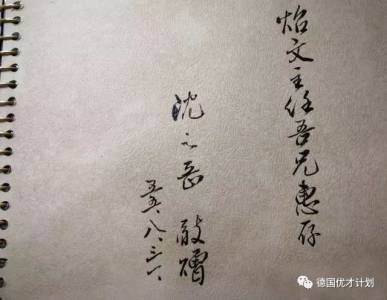 焰文主任吾兄惠存
沈之岳 敬赠
五五、八、三一、
德国优才计划